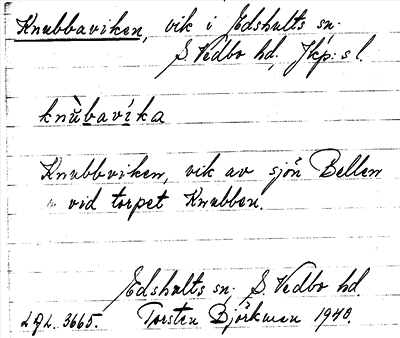 Knubbaviken, vik i Edshults sn.
S. Vedbo hd, Jkp:s l.
knùbavíka
Knubbviken, vik av sjön Bellen
vid torpet Knubben.
Edshults sn, S. Vedbo hd.
L.A.L. 3665. Torsten Björkman 1940.